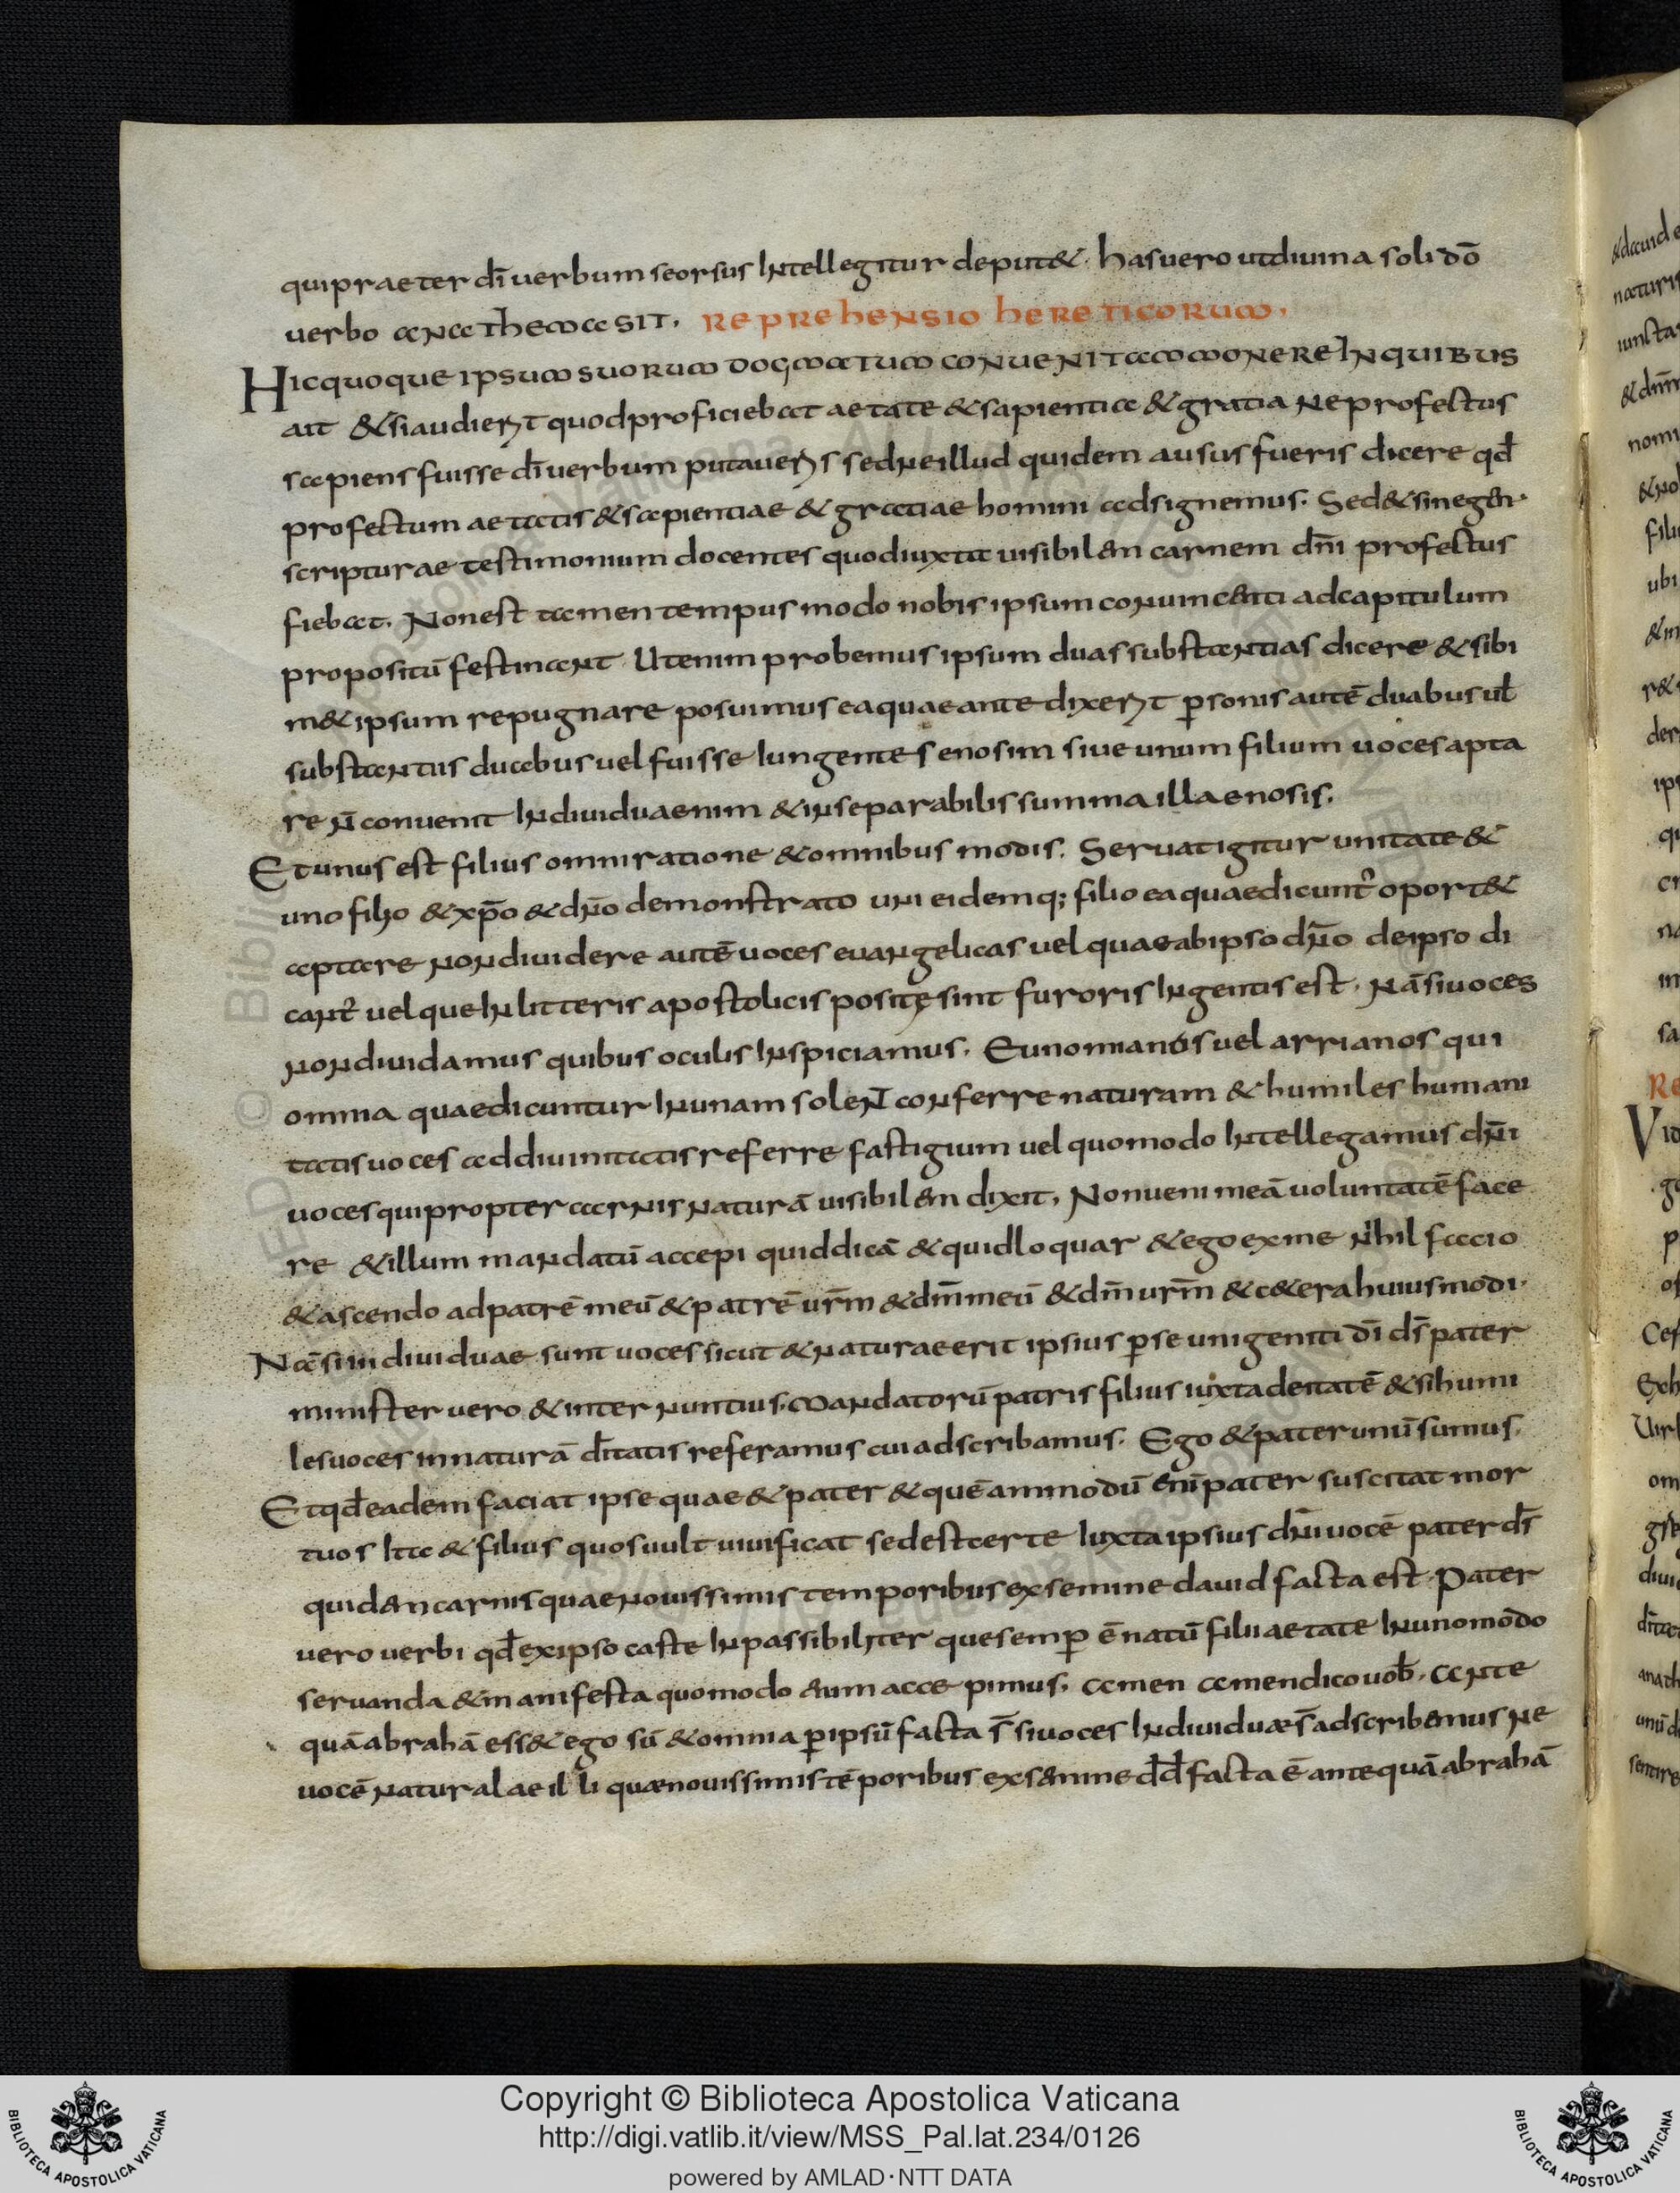 qui praeter dī uerbum seorsus Intellegitur deput&. has uero ut diuina soli dō
uerbo anathema sit. Reprehensio hereticorum.
Hic quoque ipsum suorum dogmatum conuenit ammonere In quibus
ait &si audiert quod proficiebat aetate & sapientia & gratia ne profectus
sapiens fuisse dī uerbum putauers sed ne illud quidem ausus fueris dicere qd̄
profectum aetatis & sapientiae & gratiae homini adsignemus. Sed & sineg&n·
scripturae testimonium docentes quod iuxta uisibil&m carnem dn̄i profectus
fiebat. Non est tamen tempus modo nobis ipsum conuinc&nti ad capitulum
propositū festinant Ut enim probemus ipsum duas substantias dicere & sibi
m& ipsum repugnare posuimus ea quae ante dixert p̄sonis autē duabus ul̄
substantiis duabus uel fuisse Iungentes enosim siue unum filium uoces apta
re n̄ conuenit Indiuidua enim & inseparabilis summa illa enosis.
Et unus est filius omni ratione & omnibus modis. Seruat igitur unitate &
uno filio & xp̄o & dn̄o demonstrato uni eidemq; filio ea quae dicunt̄ oport&
aptare non diuidere autē uoces euangelicas uel quae ab ipso dn̄o de ipso di
cant̄ uel que In litteris apostolicis positę sint furoris Ingentis est. Nā si uoces
non diuidamus quibus oculis Inspiciamus. Eunomianos uel arrianos qui
omnia quae dicuntur In unam solent conferre naturam & humiles humani
tatis uoces ad diuinitatis referre fastigium uel quomodo Intellegamus dn̄i
uoces qui propter carnis naturā uisibil&m dixit, Non ueni meā uoluntatē face
re & illum mandatū accepi quid dicā & quid loquar & ego ex me nihil facio
& ascendo ad patrē meū & patrē ur̄m & dm̄ meū & dm̄ ur̄m & c&era huiusmodi.
Nā si indiuiduae sunt uoces sicut & natura eerit ipsius p̄ se unigeniti dī ds̄ pater
minister uero & internuntius. mandatorū patris filius iuxta deitatē & si humi
les uoces in naturā dītatis referamus cui adscribamus. Ego & pater unū sumus.
Et qd̄ eadem faciat ipse quae & pater & quē ammodū &ni pater suscitat mor
tuos Ita & filius quos uult uiuificat sed est certe Iuxta ipsius dn̄i uocē pater ds̄
quid&m carnis quae nouissimis temporibus ex semine dauid facta est. Pater
uero uerbi qd̄ ex ipso caste Inpassibiliter que semp̄ ē natū filii aetate In uno modo
seruanda & manifesta quomodo &um accepimus. amen amen dico uob̄. Ante
quā abrahā ess& ego sū & omnia p̄ ipsū facta s̄ si uoces Indiuiduæ s̄ adscrib&mus ne
uocē naturalae illi quæ nouissimis tēporibus ex s&mine dd̄ facta ē antequā abrahā
Copyright © Biblioteca Apostolica Vaticana
http://digi.vatlib.it/view/MSS_Pal.lat.234/0126
powered by AMLAD·NTT DATA
BIBLIOTECA APOSTOLICA VATICANA
BIBLIOTECA APOSTOLICA VATICANA